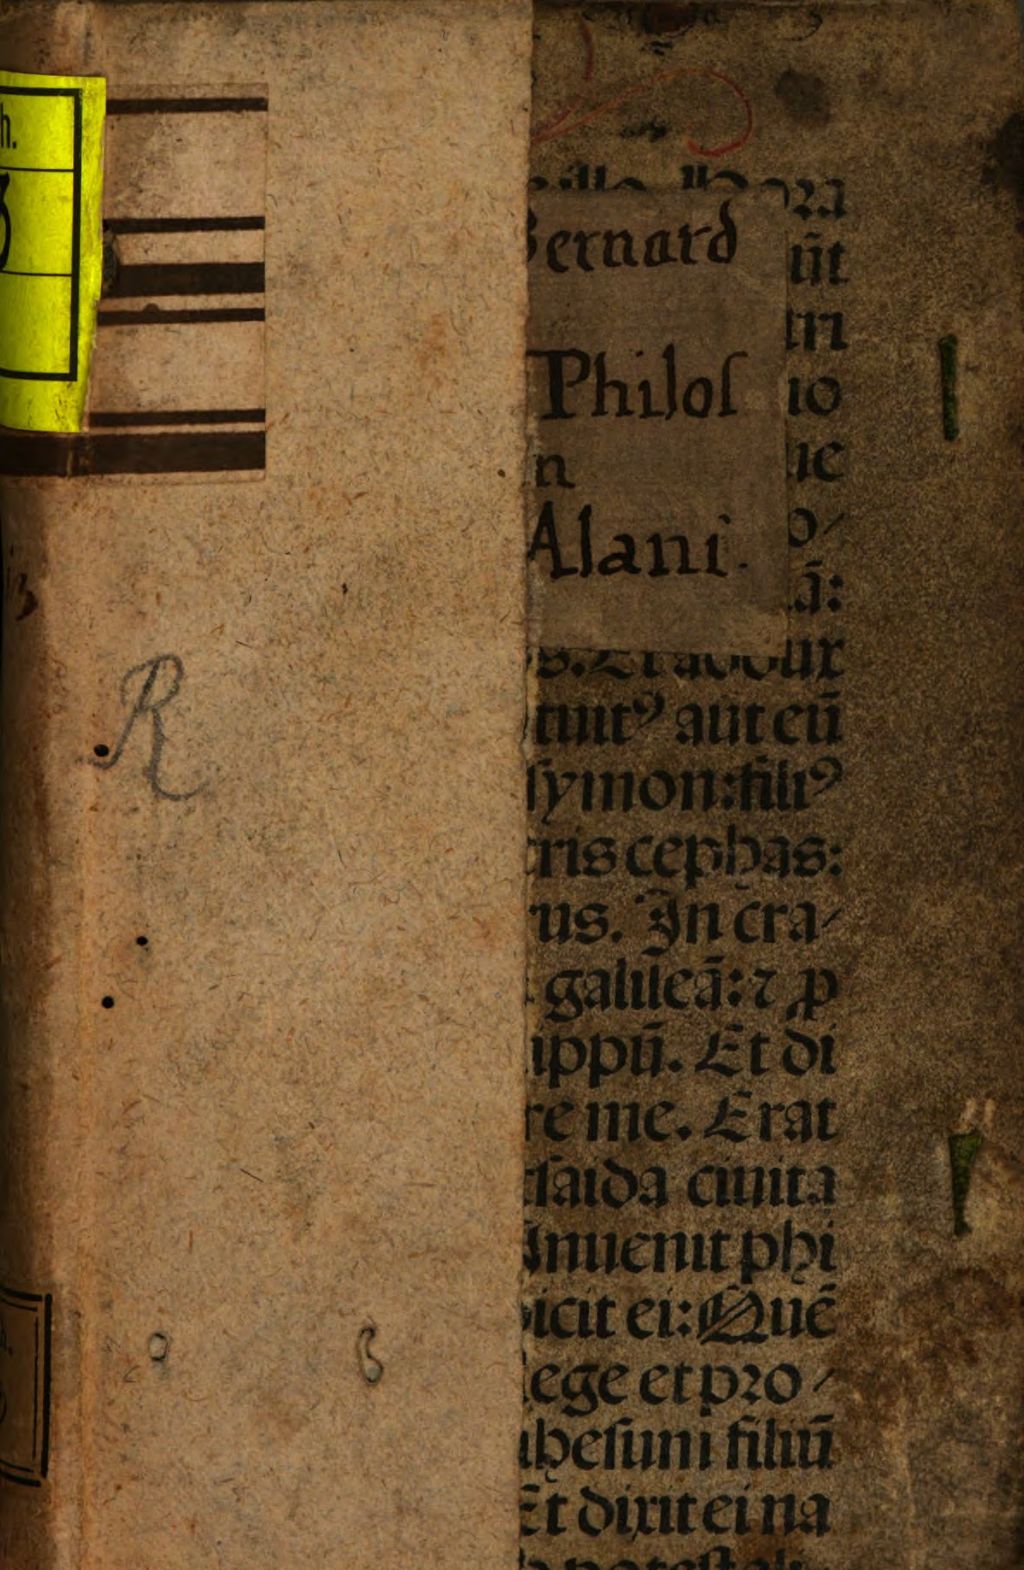 h.
3
Bernard
Philos
n
Alani.
R
ũt
m
uo
ue
o/
ã:
tuitꝰ aut eũ
ſymon: filiꝰ
tris cephas:
rus. In cra/
galileã: ⁊ ꝓ
ippũ. Et di
re me. Erat
tſaida ciuita
Inuenit phi
dicit ei: Quẽ
lege et pro/
iheſum filiũ
Et dixit ei na